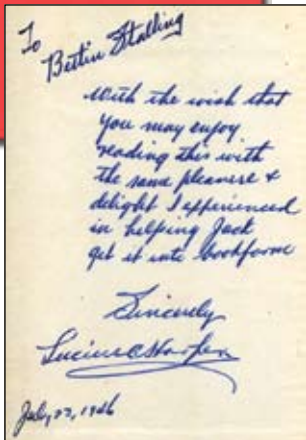 To
Bettin Stalling
With the wish that
you may enjoy
reading this with
the same pleasure &
delight I experienced
in helping Jack
get it into bookform
Sincerely
Lucius
July, 23, 1946